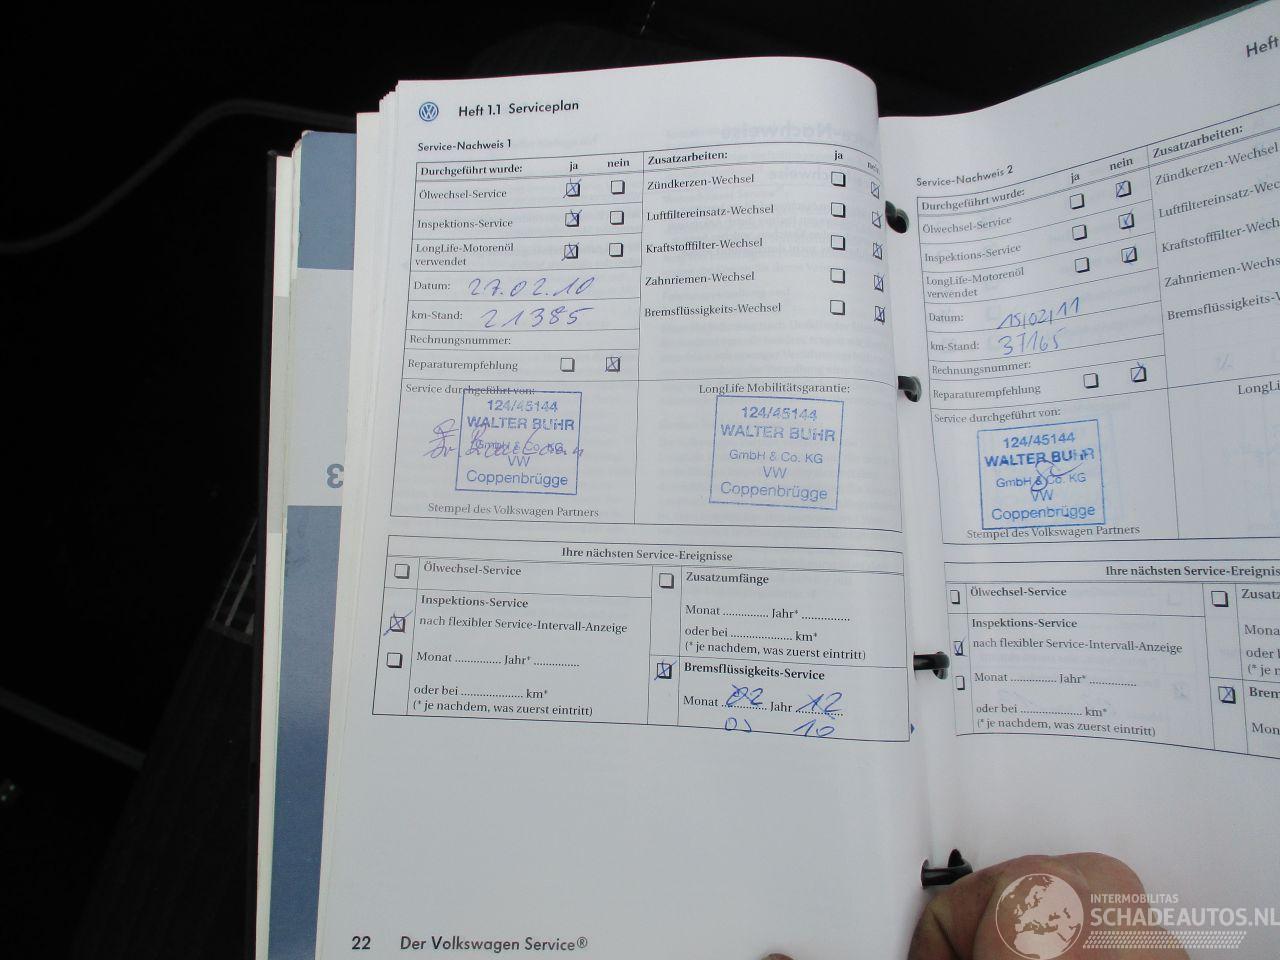 Heft 1.1 Serviceplan
Service-Nachweis 1
Durchgeführt wurde: ja nein
Ölwechsel-Service
Inspektions-Service
LongLife-Motorenöl
verwendet
Datum: 27.02.10
km-Stand: 21385
Rechnungsnummer:
Reparaturempfehlung
Service durchgeführt von:
124/45144
WALTER BUHR
GmbH & Co. KG
VW
Coppenbrügge
Stempel des Volkswagen Partners
Zusatzarbeiten: ja nein
Zündkerzen-Wechsel
Luftfiltereinsatz-Wechsel
Kraftstofffilter-Wechsel
Zahnriemen-Wechsel
Bremsflüssigkeits-Wechsel
LongLife Mobilitätsgarantie:
124/45144
WALTER BUHR
GmbH & Co. KG
VW
Coppenbrügge
Ihre nächsten Service-Ereignisse
Ölwechsel-Service
Inspektions-Service
nach flexibler Service-Intervall-Anzeige
Monat ............... Jahr* ...............
oder bei .................... km*
(* je nachdem, was zuerst eintritt)
Zusatzumfänge
Monat ............... Jahr* ...............
oder bei .................... km*
(* je nachdem, was zuerst eintritt)
Bremsflüssigkeits-Service
Monat Jahr 12
10
22 Der Volkswagen Service®
Heft
Service-Nachweis 2
Durchgeführt wurde: ja nein
Ölwechsel-Service
Inspektions-Service
LongLife-Motorenöl
verwendet
Datum: 15/02/11
km-Stand: 37165
Rechnungsnummer:
Reparaturempfehlung
Service durchgeführt von:
124/45144
WALTER BUHR
GmbH & Co. KG
VW
Coppenbrügge
Stempel des Volkswagen Partners
Zusatzarbeiten:
Zündkerzen-Wechsel
Luftfiltereinsatz-Wec
Kraftstofffilter-Wech
Zahnriemen-Wechs
Bremsflüssigkeits-
LongLi
Ihre nächsten Service-Ereignis
Ölwechsel-Service
Inspektions-Service
nach flexibler Service-Intervall-Anzeige
Monat ............... Jahr* ...............
oder bei .................... km*
(* je nachdem, was zuerst eintritt)
Zusatz
Mona
oder b
(* je n
Brem
Mon
3
INTERMOBILITAS
SCHADEAUTOS.NL